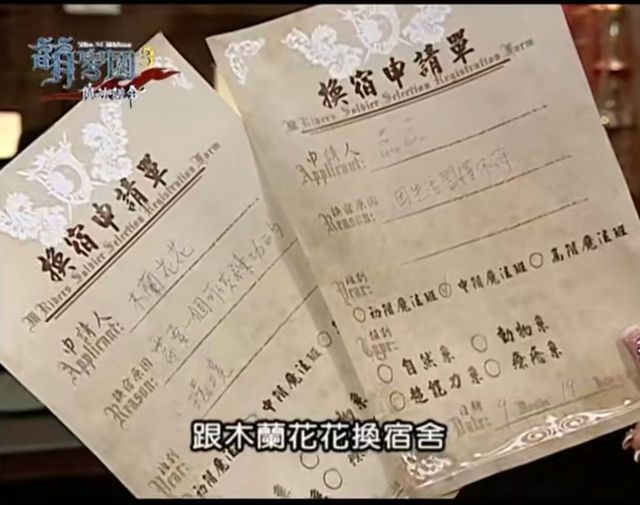 The M Riders
萌學園3
換宿申請單
M Riders Soldier Selection Registration Form
申請人
Applicant:
木蘭花花
換宿原因
Reason:
需要一個可以練功的
環境
級別
Year:
初階魔法班
中階魔法班
類別
Type:
換宿申請單
M Riders Soldier Selection Registration Form
申請人
Applicant:
換宿原因
Reason:
因生活習慣不同
級別
Year:
初階魔法班 中階魔法班 高階魔法班
類別
Type:
自然系 動物系
超能力系 療癒系
日期
Date: 9 Month 19
跟木蘭花花換宿舍